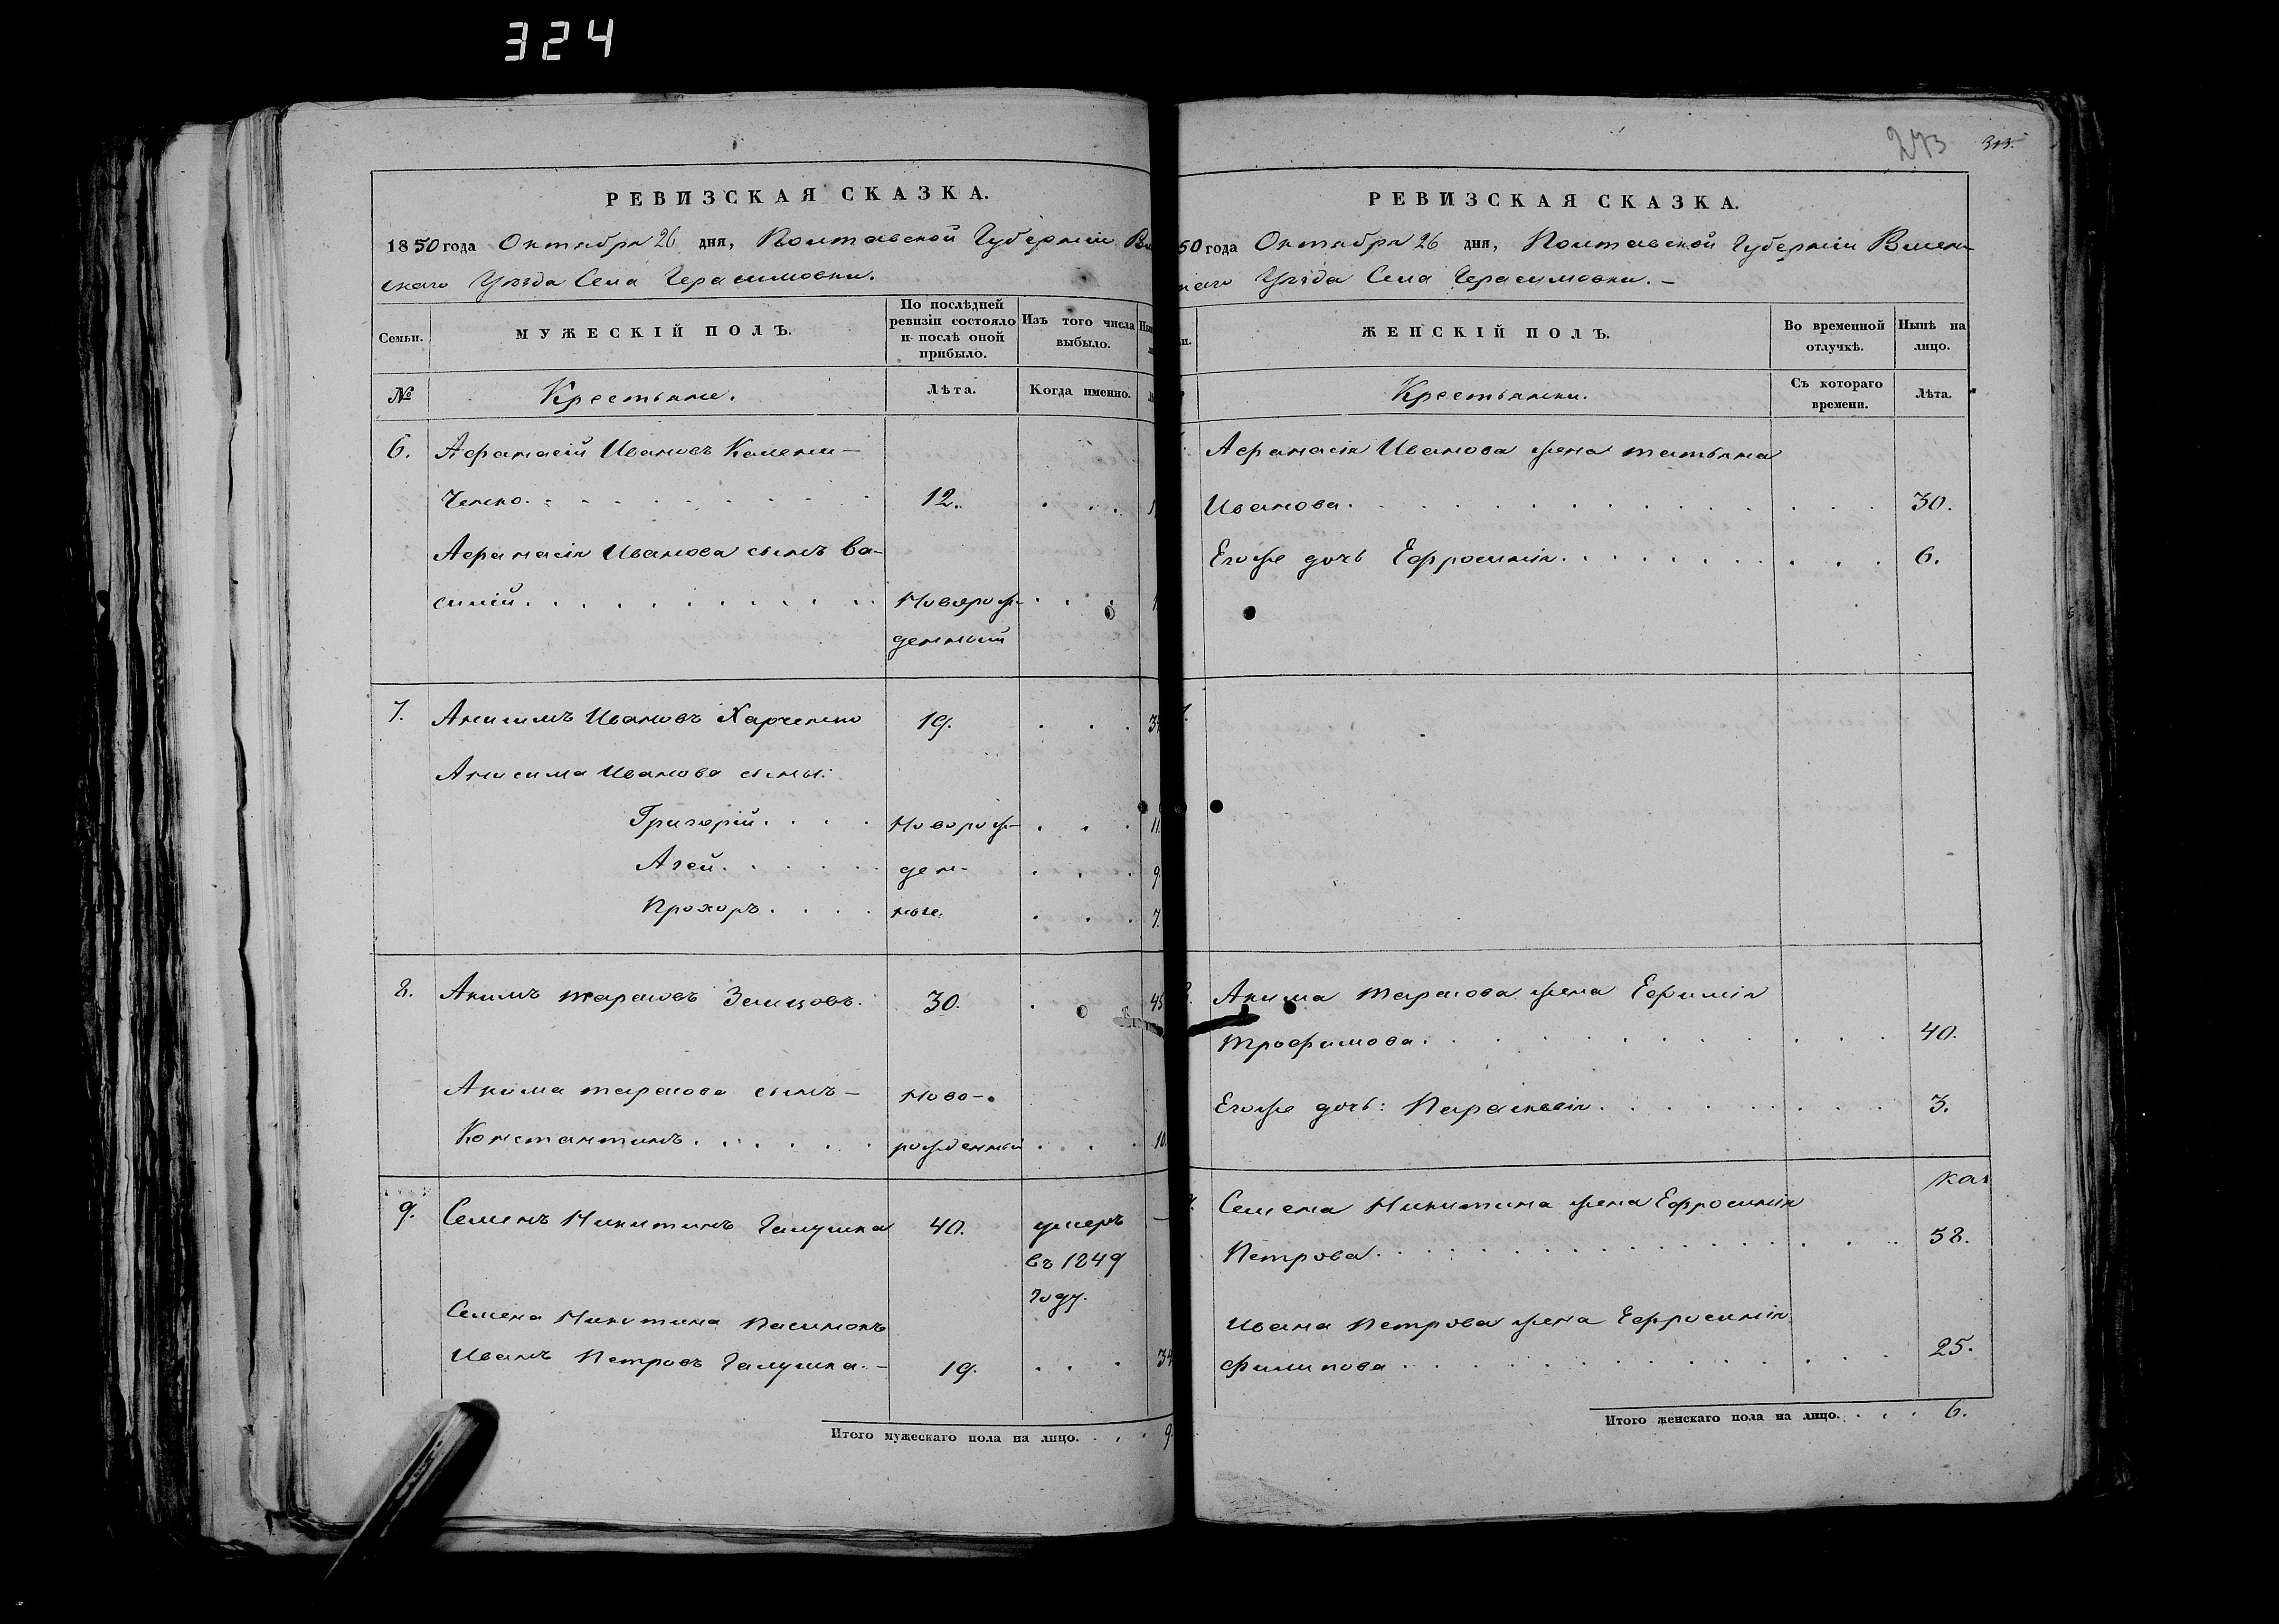 324
273 313.
РЕВИЗСКАЯ СКАЗКА.
1850 года Октября 26 дня, Полтавской Губернiи
скаго Уѣзда Села Герасимовки.
Семьи.
МУЖЕСКІЙ ПОЛЪ.
По послѣдней ревизіи состояло и послѣ оной прибыло.
Изъ того числа выбыло.
№
Крестьяне.
Лѣта.
Когда именно.
6. Афанасій Ивановъ Калени-
ченко. 12.
Афанасія Иванова сынъ Ва-
силій. Новорож-
денный
7. Анисимъ Ивановъ Харченко 19. 34
Анисима Иванова сыны:
Григорій. Новорож- 11.
Агей. ден- 9.
Прохоръ. ные. 7.
8. Акимъ Тарасовъ 30. 45
Акима Тарасова сынъ- Ново-
Константинъ. рожденный 10.
9. Семенъ Никитинъ Галушка 40. умеръ
въ 1849
году.
Семена Никитина Пасынокъ
Иванъ Петровъ Галушка.- 19. 34
Итого мужескаго пола на лицо. 9.
РЕВИЗСКАЯ СКАЗКА.
50 года Октября 26 дня, Полтавской Губернiи
Уѣзда Села Герасимовки.-
ЖЕНСКІЙ ПОЛЪ.
Во временной отлучкѣ.
Нынѣ на лицо.
Крестьянки.
Съ котораго времени.
Лѣта.
Афанасія Иванова жена Татьяна
Иванова. 30.
Егоже дочь Ефросинія. 6.
Акима Тарасова жена Ефимія
Трофимова. 40.
Егоже дочь: Параскевія. 3.
Семена Никитина жена Ефросинія
Петрова. 58.
Ивана Петрова жена Ефросинія
Филипова. 25.
Итого женскаго пола на лицо. 6.